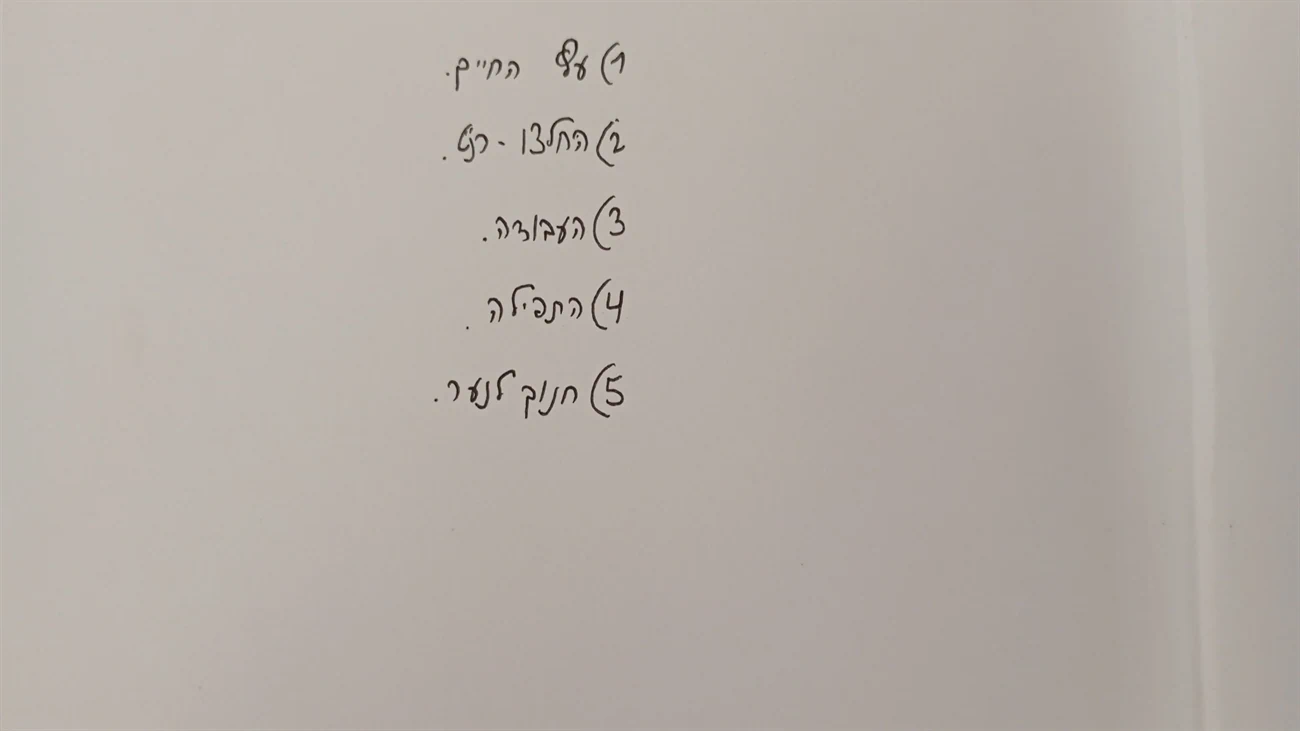 1) עץ החיים.
2) החלצו - רנט.
3) העבודה.
4) התפילה.
5) חנוך לנער.